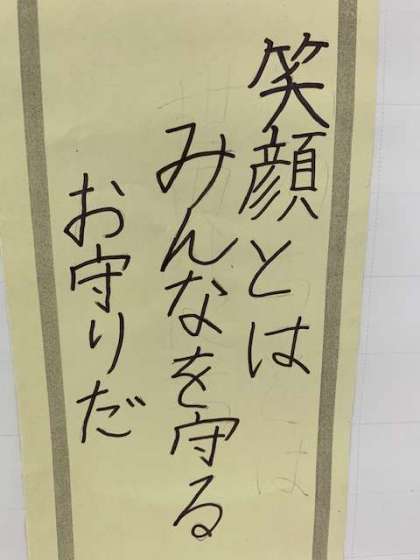 笑顔とは
みんなを守る
お守りだ